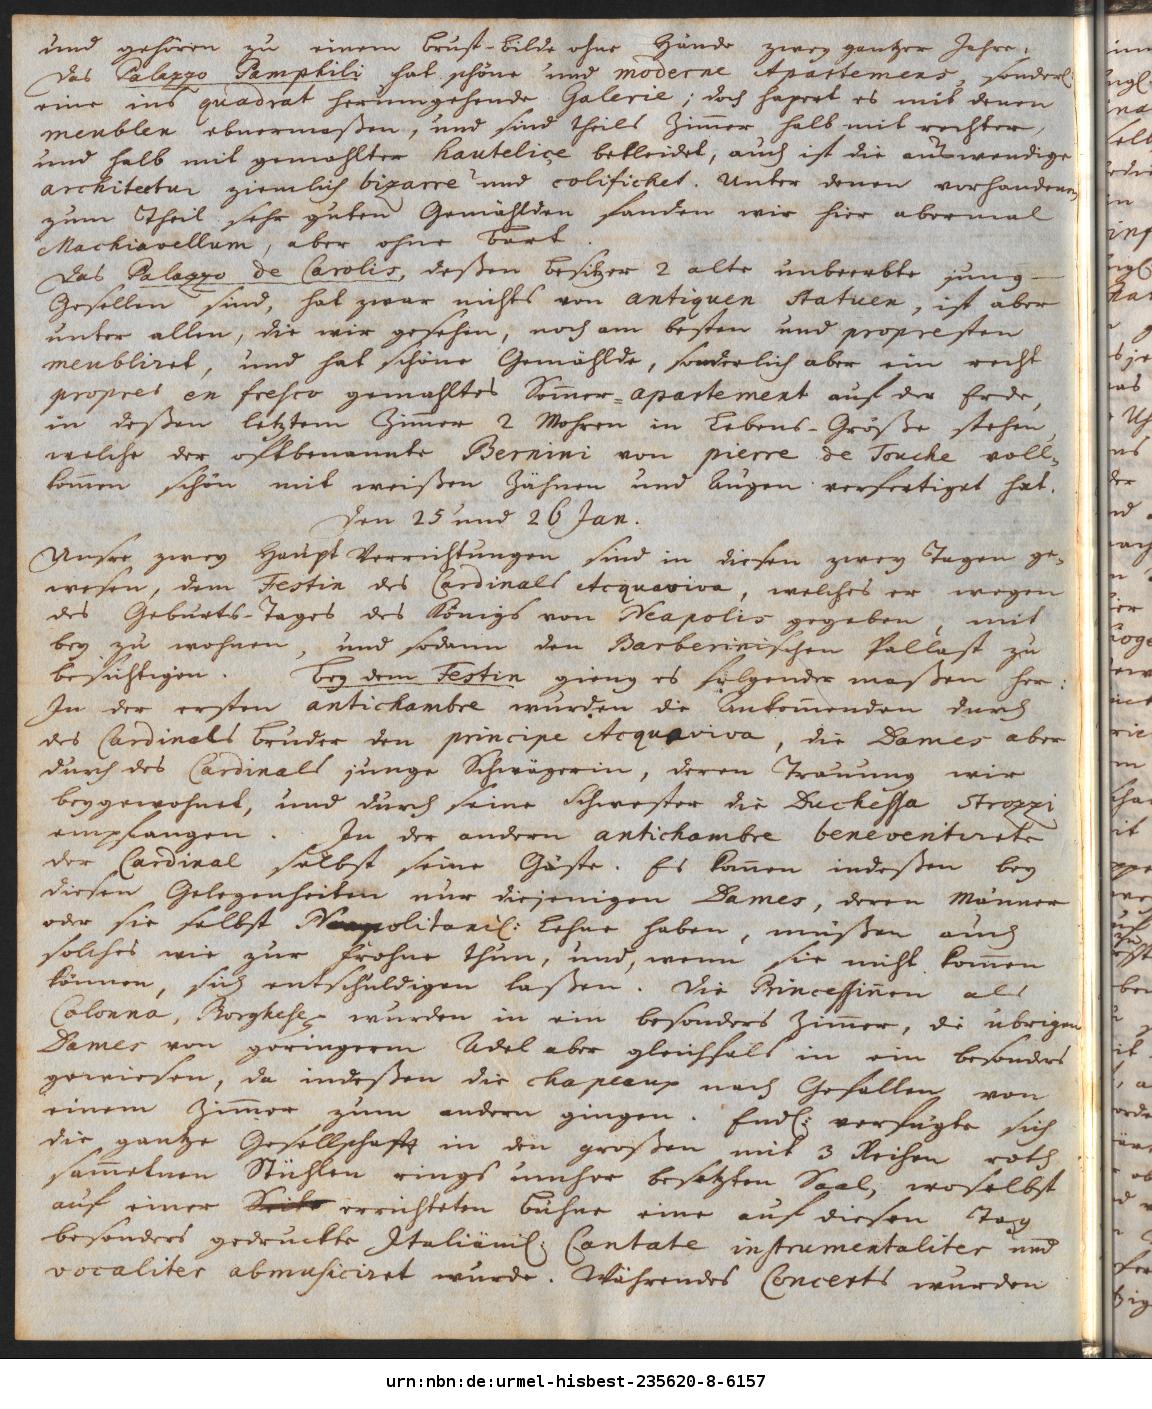 und gehören zu einem Brust-Bilde ohne Hände zwey gantzer Jahre.
Das Palazzo Pamphili hat schöne und moderne Apartemens, sonderl:
eine ins quadrat herumgehende Galerie; doch hapret es mit denen
meublen ebnermaßen, und sind theils Zimmer halb mit rechter,
und halb mit gemahlter hauteliçe bekleidet, auch ist die auswendige
architectur ziemlich bizarre und colifichet. Unter denen vorhandenen
zum Theil sehr guten Gemählden fanden wir hier abermal
Machiavellum, aber ohne Bart.
Das Palazzo de Carolis, deßen Besitzer 2 alte unbeerbte jung-
Gesellen sind, hat zwar nichts von antiquen Statuen, ist aber
unter allen, die wir gesehen, noch am besten und propresten
meubliret, und hat schöne Gemählde, sonderlich aber ein recht
propres en fresco gemahltes Som̄er-apartement auf der Erde,
in deßen letztem Zim̄er 2 Mohren in Lebens-Größe stehen,
welche der oftbenannte Bernini von pierre de Touche voll-
kom̄en schön mit weißen Zähnen und Augen verfertiget hat.
Den 25 und 26 Jan.
Unsre zwey Haupt Verrichtungen sind in diesen zwey Tagen ge-
wesen, dem Festin des Cardinals Acquaviva, welches er wegen
des Geburts-Tages des Königs von Neapolis gegeben, mit
bey zu wohnen, und sodann den Barberinischen Pallast zu
besichtigen. Bey dem Festin gieng es folgender maßen her:
In der ersten antichambre wurden die Ankom̄enden durch
des Cardinals Bruder den principe Acquaviva, die Dames aber
durch des Cardinals junge Schwägerin, deren Trauung wir
beygewohnet, und durch seine Schwester die Duchessa Strozzi
empfangen. In der andern antichambre beneventirete
der Cardinal selbst seine Gäste. Es kom̄en indeßen bey
diesen Gelegenheiten nur diejenigen Dames, deren Männer
oder sie selbst Neapolitanil: Lehne haben, müßen auch
solches wie zur Frohne thun, und, wenn sie nicht kom̄en
können, sich entschuldigen laßen. Die Princessiñen als
Colonna, Borghese wurden in ein besonders Zim̄er, die übrigen
Dames von geringerm Adel aber gleichfals in ein besonders
gewiesen, da indeßen die chapeaux nach Gefallen von
einem Zim̄er zum andern gingen. Endl: verfügte sich
die gantze Gesellschaft in den großen mit 3 Reihen roth
sam̄etnen Stühlen rings umher besetzten Saal, woselbst
auf einer Seite errichteten Bühne eine auf diesen Tag
besonders gedruckte Italiänil: Cantate instrumentaliter und
vocaliter abmusiciret wurde. Währendes Concerts wurden
urn:nbn:de:urmel-hisbest-235620-8-6157